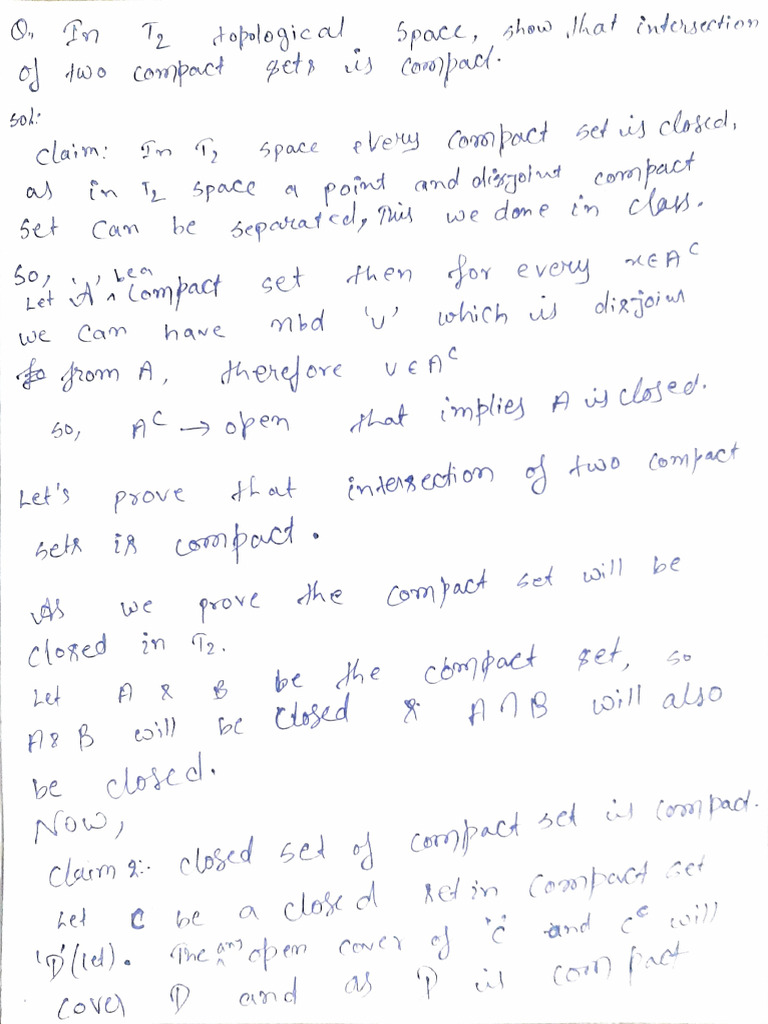 Q. In T2 topological space, show that intersection
of two compact sets is compact.
Sol:
Claim: In T2 space every compact set is closed,
as in T2 space a point and disjoint compact
set can be separated, this we done in class.
So,
Let 'A' be a compact set then for every x∈A^c
we can have nbd 'U' which is disjoint
from A, therefore U∈A^c
so, A^c → open that implies A is closed.
Let's prove that intersection of two compact
sets is compact.
As we prove the compact set will be
closed in T2.
Let A & B be the compact set, so
A & B will be closed & A∩B will also
be closed.
Now,
Claim 2:- closed set of compact set is compact.
Let C be a closed set in compact set
'D' (let). The any open cover of 'C' and C^c will
cover D and as D is compact